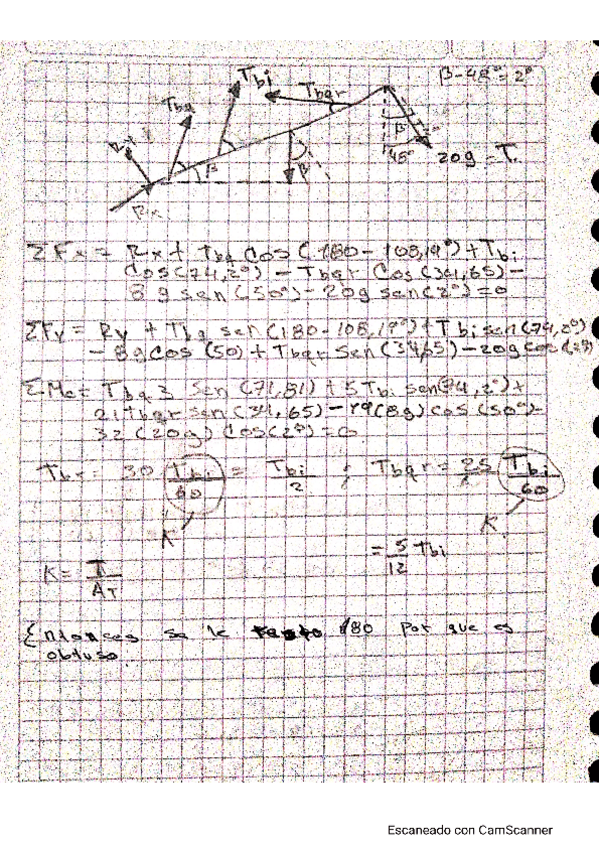 Tbi
Tbqr
β-48°=2°
Tbq
β
β
β
48°
20g = T.
Rx
ΣFx = Rx + Tbq Cos (180-108,19°) + Tbi
Cos(74,2°) - Tbqr Cos(34,65) -
8g sen(50°) - 20g sen(2°)=0
ΣFy = Ry + Tbq sen(180-108,19°) + Tbi sen(74,2°)
- 8g cos (50) + Tbqr Sen(34,65) - 20g cos(2°)
ΣMo= Tbq 3 Sen (71,81) + 5Tbi sen(74,2°)+
21Tbqr sen(34,65) - 19(8g) cos(50°)-
32(20g) Cos(2°)=0
Tbr= 30 Tbi/60 = Tbi/2 ; Tbqr= 25 Tbi/60
K
K
= 5/12 Tbi
K= T/AT
Entonces se le 180 por que es
obtuso.
Escaneado con CamScanner